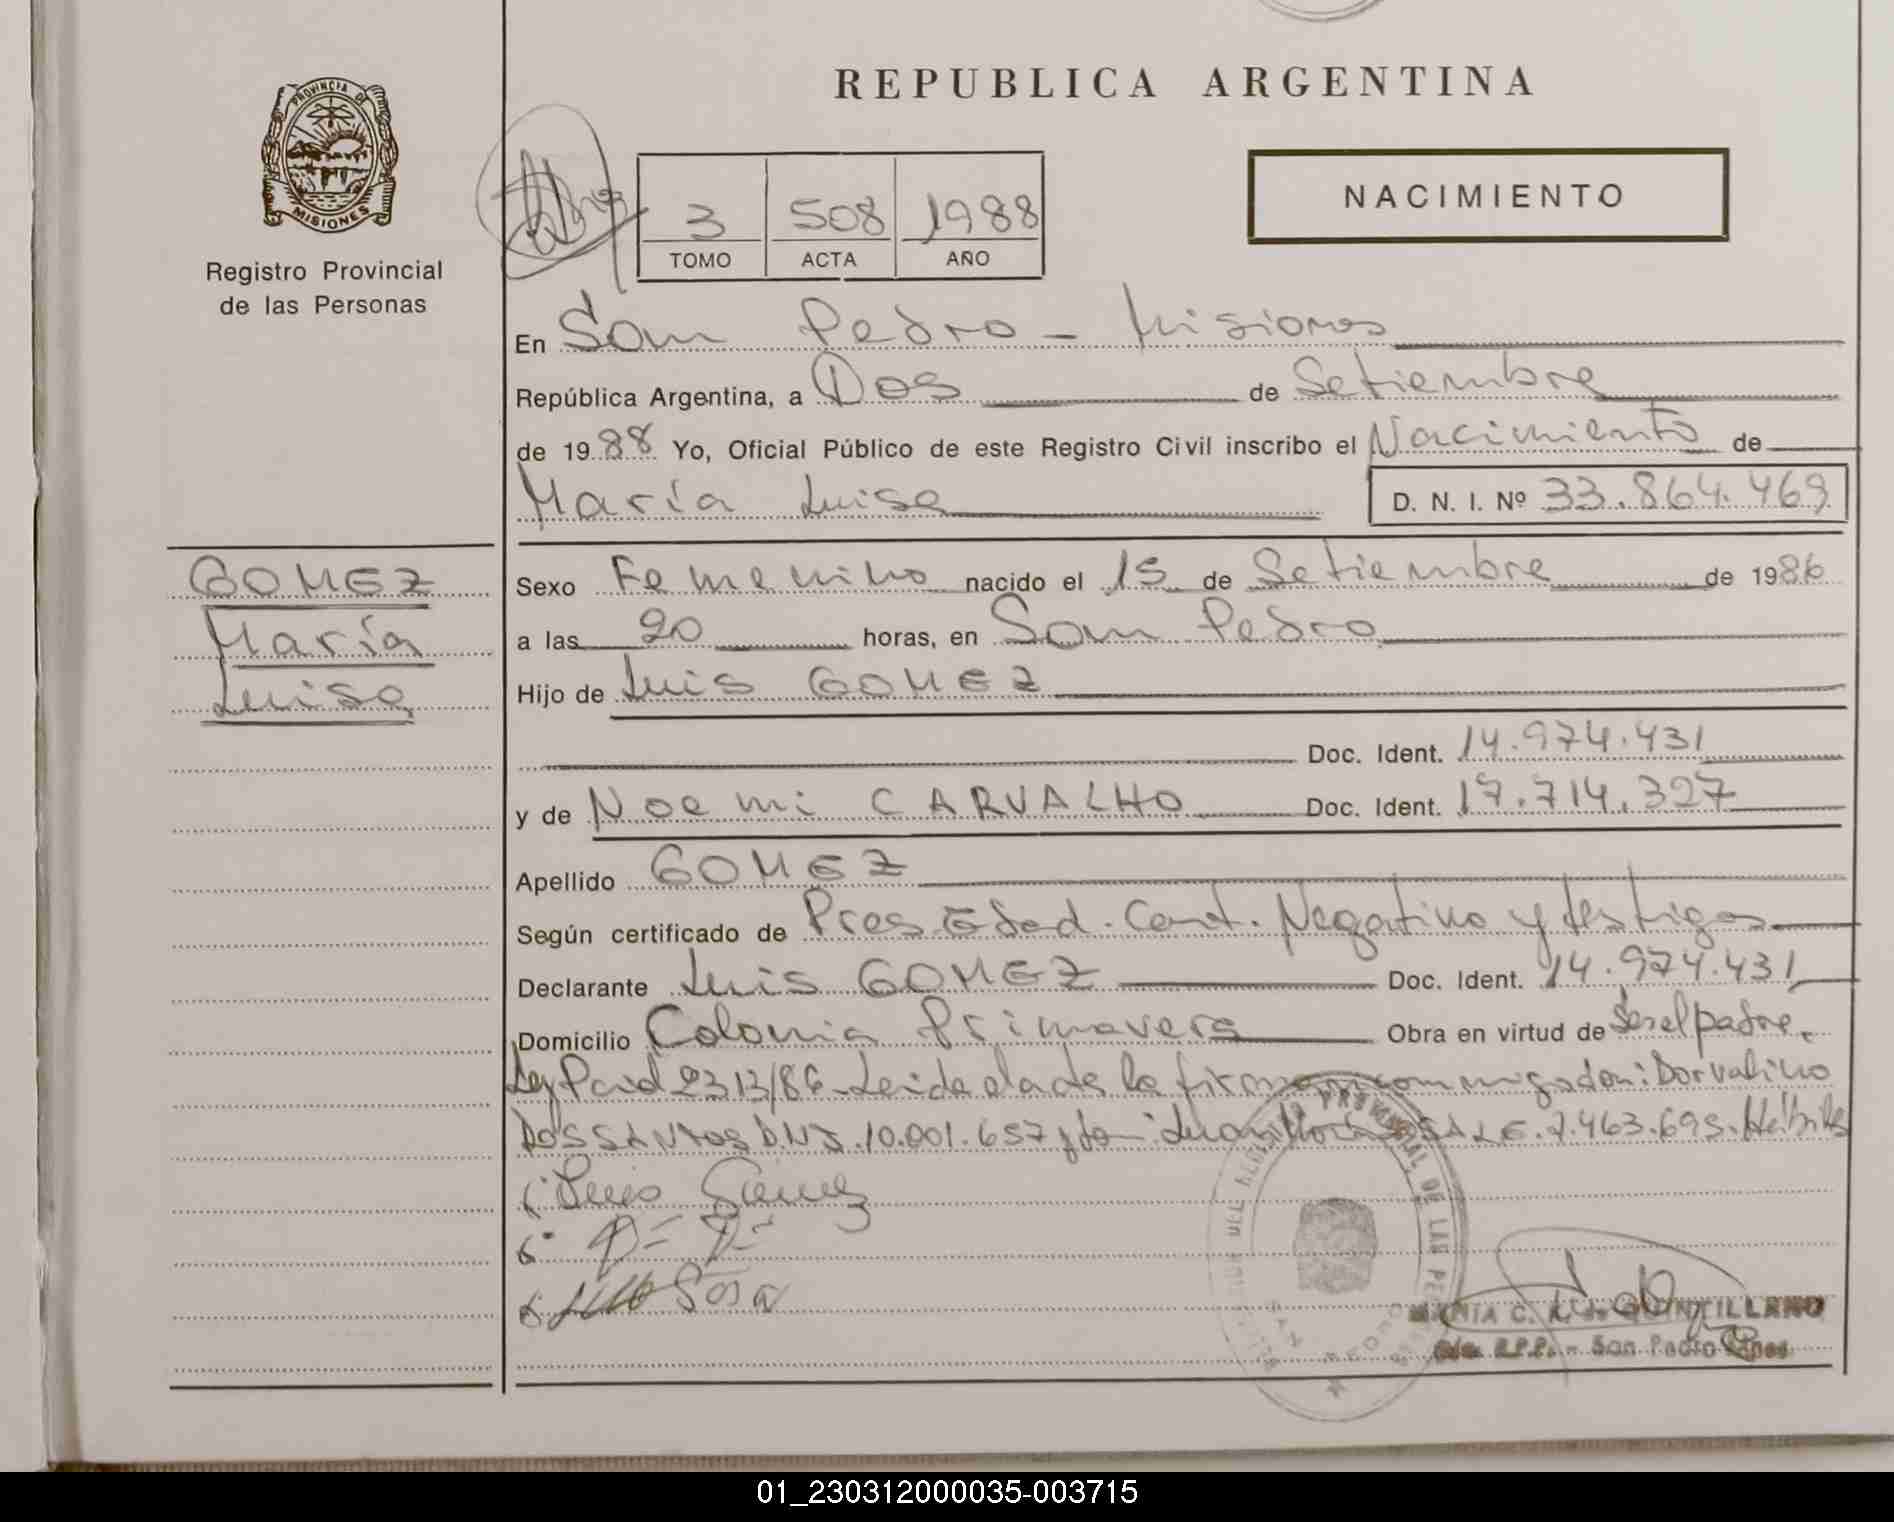 REPUBLICA ARGENTINA
PROVINCIA DE
MISIONES
Registro Provincial
de las Personas
3 508 1988
TOMO ACTA AÑO
NACIMIENTO
En San Pedro - Misiones
República Argentina, a Dos de Setiembre
de 1988 Yo, Oficial Público de este Registro Civil inscribo el Nacimiento de
María Luisa D. N. I. Nº 33.864.469
GOMEZ
María
Luisa
Sexo Femenino nacido el 15 de Setiembre de 1986
a las 20 horas, en San Pedro
Hijo de Luis GOMEZ
Doc. Ident. 14.974.431
y de Noemi CARVALHO Doc. Ident. 17.714.327
Apellido GOMEZ
Según certificado de Pres. Edad. Cert. Negativo y testigos
Declarante Luis GOMEZ Doc. Ident. 14.974.431
Domicilio Colonia Primavera Obra en virtud de Ser el padre.
Ley 2313/86 - Leida el acta la firman conmigo don: Dorvalino
DOS SANTOS D.N.I. 10.001.657 y don SOSA L.E. 7.463.693. Hábiles
Luis Gomez
Sosa
MARIA C. R. de QUINTILLANO
R.P.P. - San Pedro Mnes
01_230312000035-003715